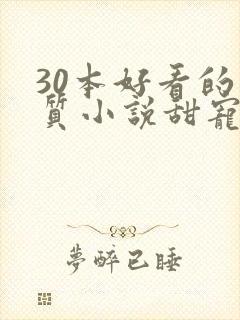 30本好看的
質小說甜寵
夢醉已睡